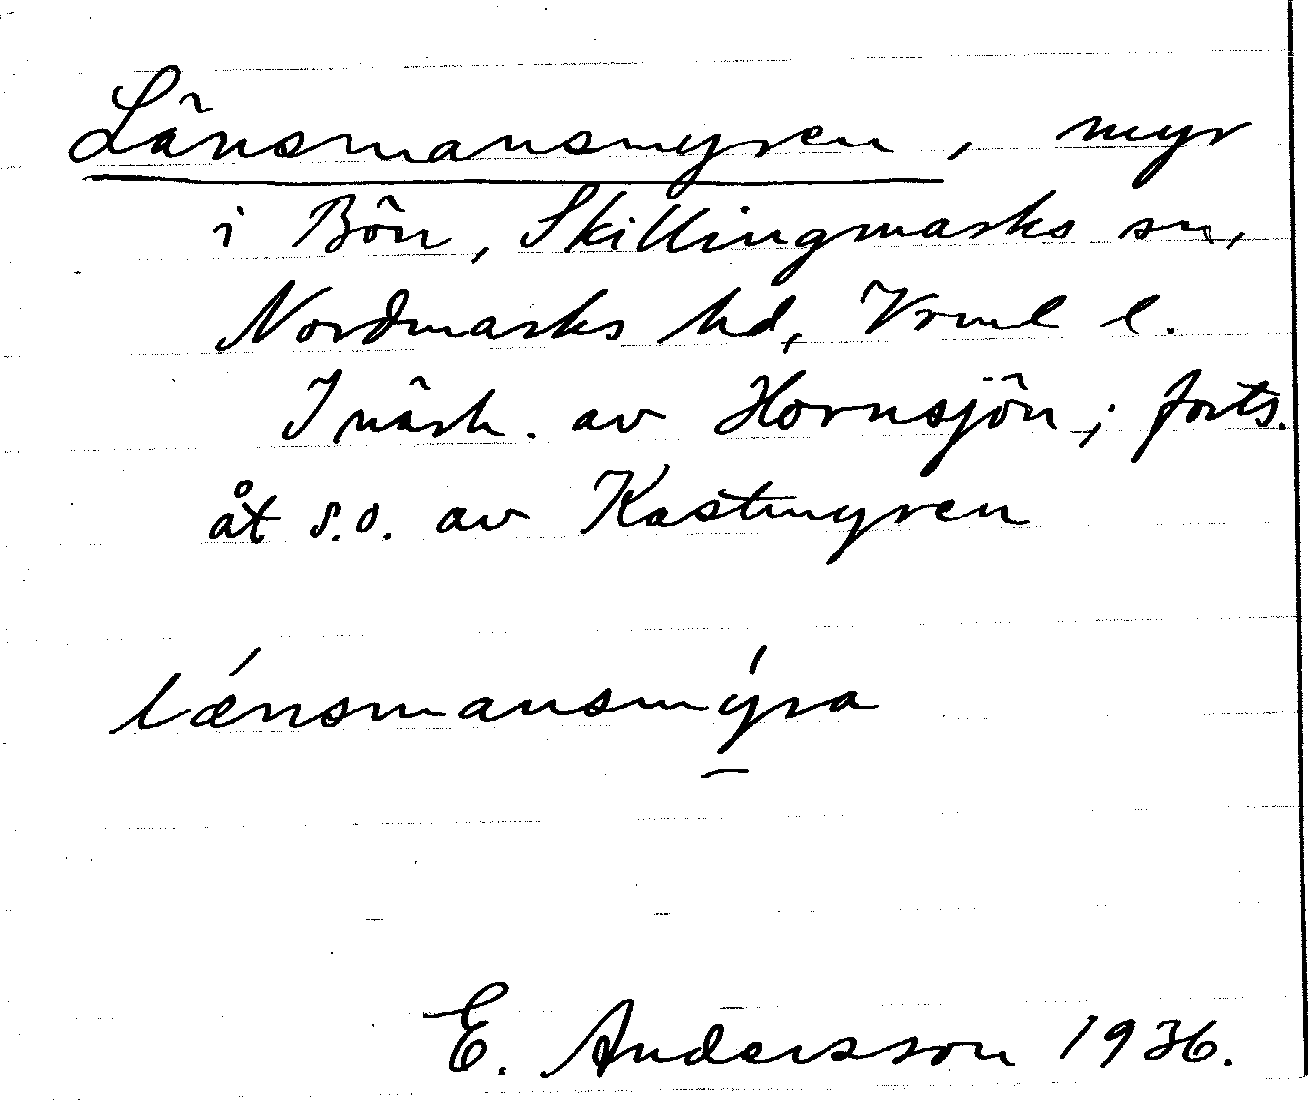 Länsmansmyren, myr
i Bön, Skillingmarks sn,
Nordmarks hd, Vrml l.
I närh. av Hornsjön; forts.
åt s.o. av Kastmyren
lǽnsmansmýra
E. Andersson 1936.